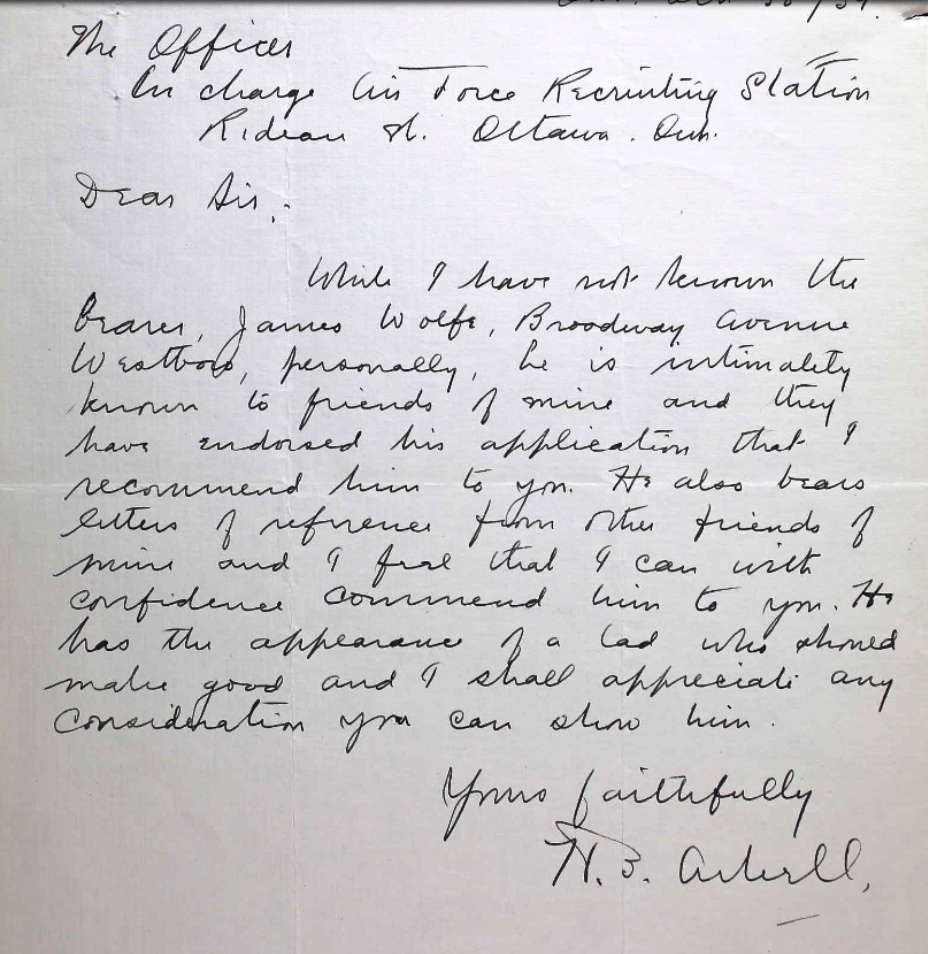 The Officer
In charge Air Force Recruiting Station
Rideau St. Ottawa. Ont.
Dear Sir,
While I have not known the
bearer, James Wolfe, Broadway Avenue
Westboro, personally, he is intimately
known to friends of mine and they
have endorsed his application that I
recommend him to you. He also bears
letters of reference from other friends of
mine and I feel that I can with
confidence commend him to you. He
has the appearance of a lad who should
make good and I shall appreciate any
consideration you can show him.
Yours faithfully
H. B.